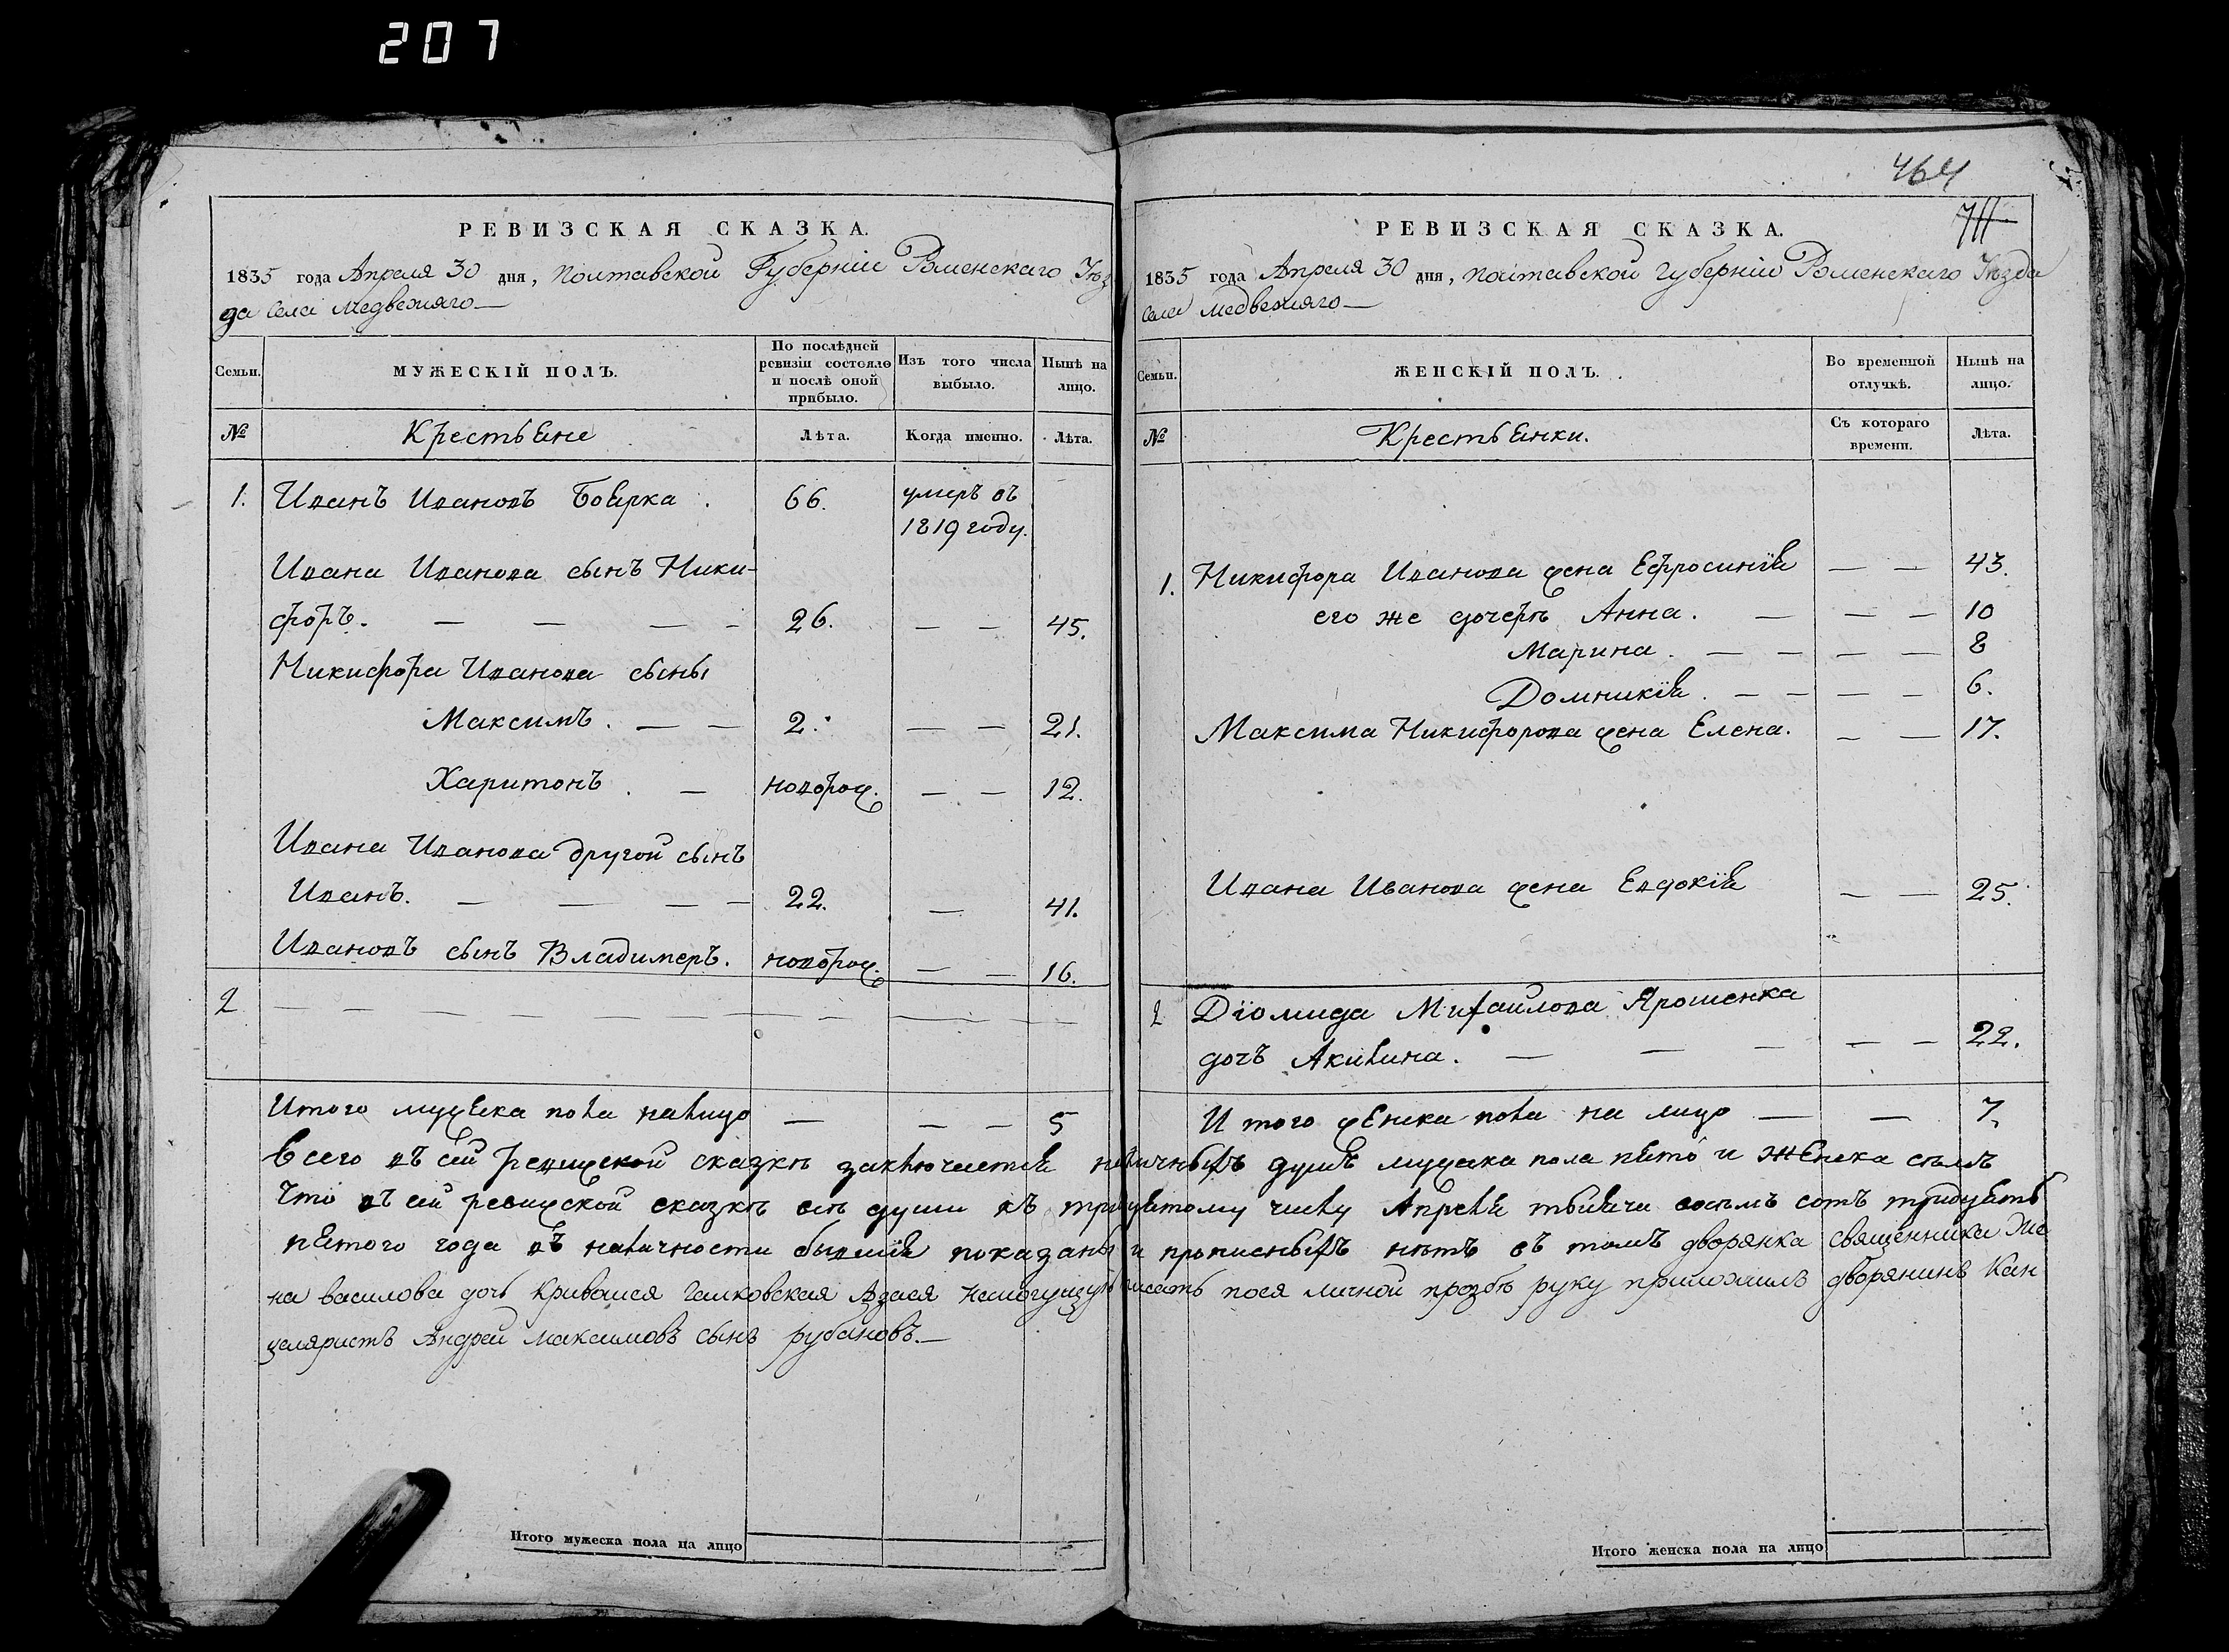 207
РЕВИЗСКАЯ СКАЗКА.
1835 года Апреля 30 дня, Полтавской Губерніи Роменскаго Уѣз
да села медвежяго —
Семьи.
МУЖЕСКІЙ ПОЛЪ.
По послѣдней ревизіи состояло и послѣ оной прибыло.
Изъ того числа выбыло.
Нынѣ на лицо.
№
Крестьяне
Лѣта.
Когда именно.
Лѣта.
1. Иванъ Ивановъ Боярка . 66. умеръ въ
1819 году.
Ивана Иванова сынъ Ники-
форъ. — — — — 26. — — 45.
Никифора Иванова сыны
Максимъ . — — 2. — — 21.
Харитонъ . — новорож. — — 12.
Ивана Иванова другой сынъ
Иванъ. — — — — 22. — 41.
Ивановъ сынъ Владимеръ. новорож. — — 16.
2 — — — — — — — — — —
Итого мужеска пола налицо — — — 5
464
711
РЕВИЗСКАЯ СКАЗКА.
1835 года Апреля 30 дня, полтавской губерніи Роменскаго Уѣзда
села медвежяго —
Семьи.
ЖЕНСКІЙ ПОЛЪ.
Во временной отлучкѣ.
Нынѣ на лицо.
№
Крестьянки.
Съ котораго времени.
Лѣта.
1. Никифора Иванова жена Ефросинія — — 43.
его же дочерѣ Анна. — — — 10
Марина . — — — — 8
Домникія . — — — — 6.
Максима Никифорова жена Елена. — — 17.
Ивана Иванова жена Евдокія — — 25.
2 Діомида Михайлова Ярошенка
дочъ Акилина. — — — — — 22.
И того женска пола на лицо — — 7.
Всего въ сей ревижской сказкѣ заключается наличныхъ душъ мужеска пола пято и женска сѣмъ
Что въ сей ревижской сказкѣ всѣ души къ тридцятому числу Апреля тысяча восѣмъ сотъ тридцять
пятого года въ наличности бывшія показаны и прописныхъ нѣтъ въ томъ дворянка священника же
на василова дочь Галковская писать пося личной прозбѣ руку приложилъ дворянинъ Кан
целяристъ Андрей максимовъ сынъ рубановъ. —
Итого мужеска пола на лицо
Итого женска пола на лицо